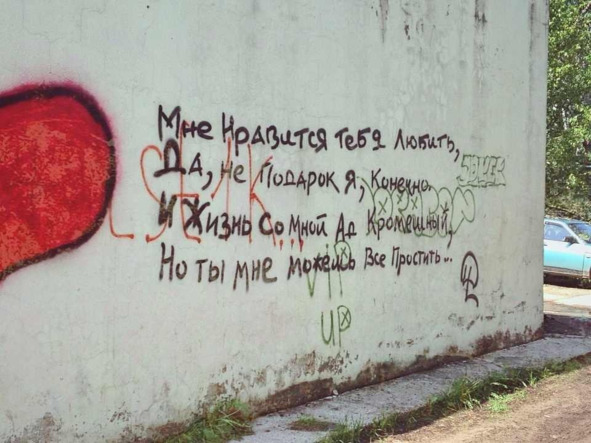 Мне Нравится тебя Любить,
Да, не Подарок Я, Конечно.
И Жизнь Со мной Ад Кромешный,
Но ты мне можешь Все Простить...
UP